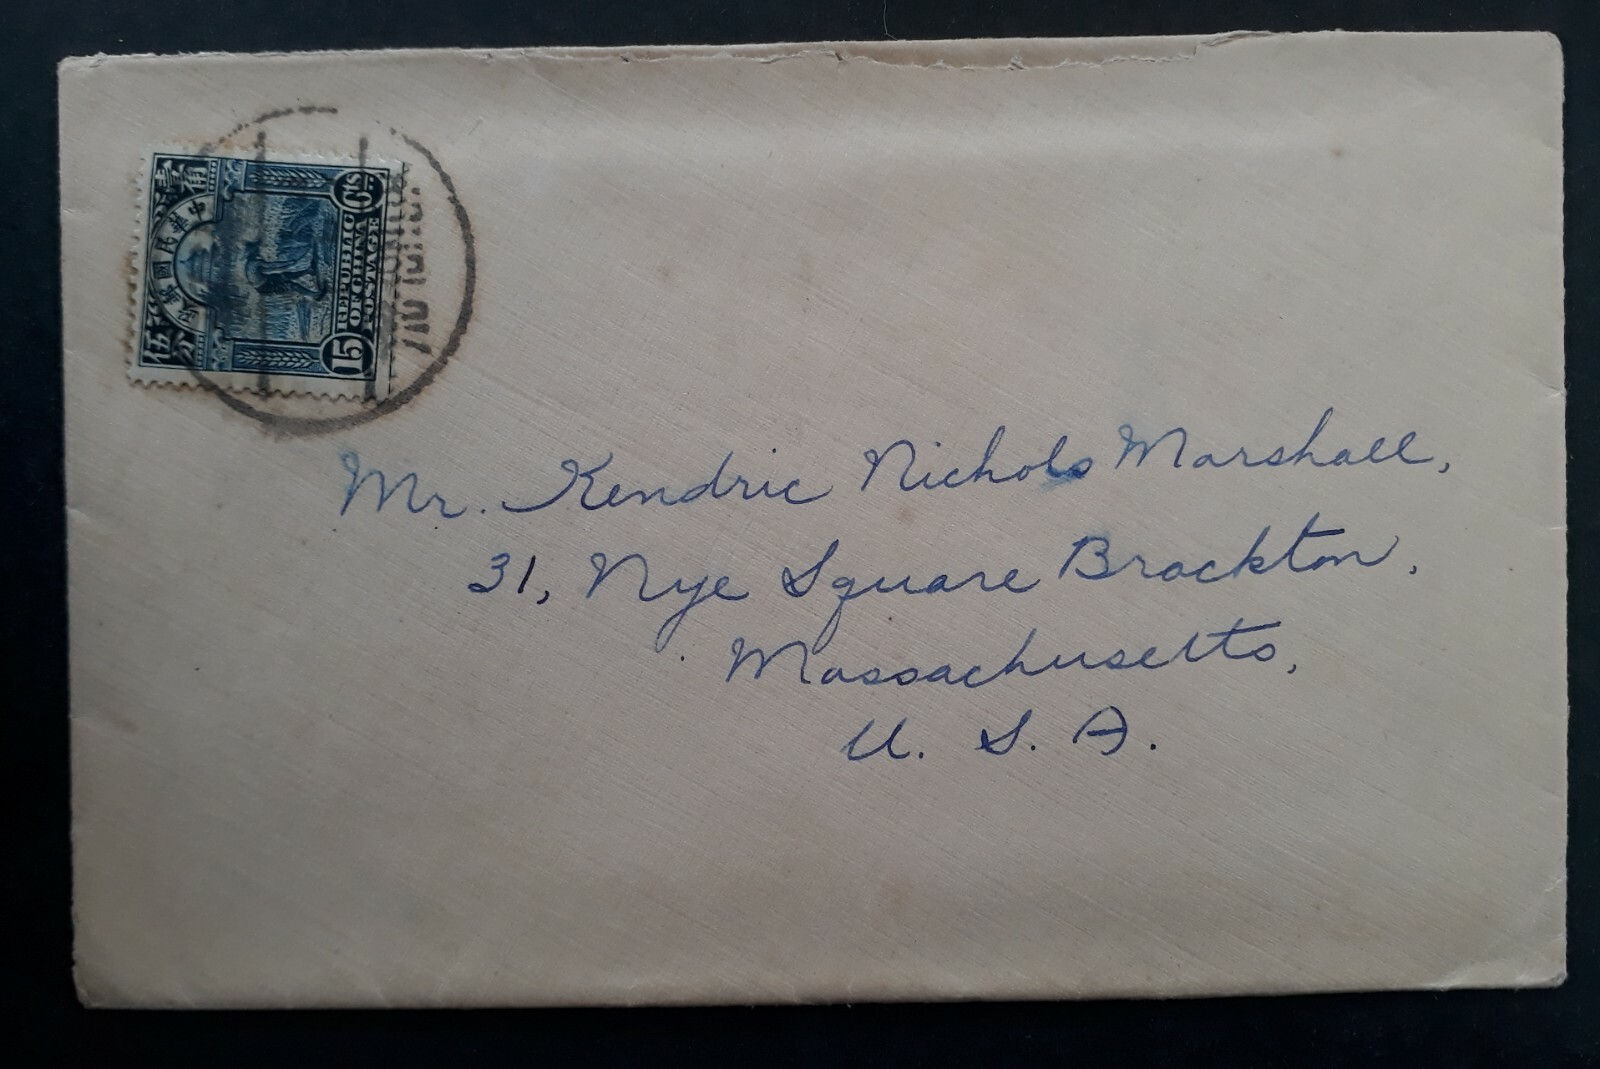 壹角
伍分
中華民國郵政
15 Cts
REPUBLIC
OF CHINA
POSTAGE
Mr. Kendric Nichols Marshall,
31, Nye Square Brockton,
Massachusetts,
U. S. A.